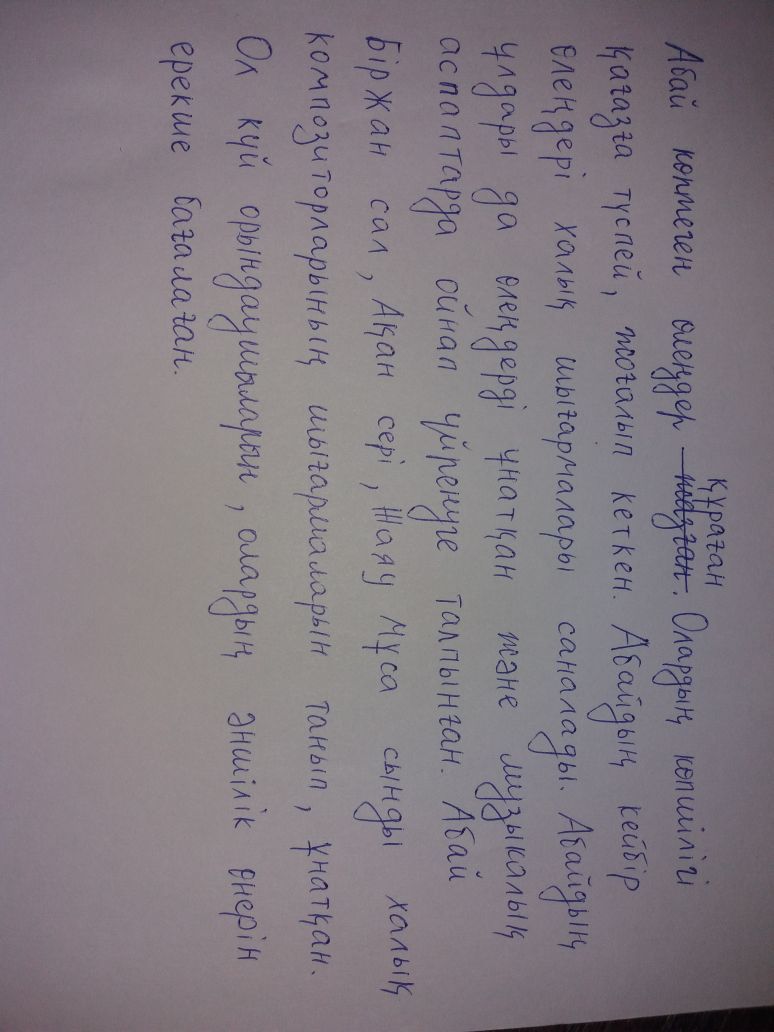 Абай көптеген өлеңдер құраған жазған. Олардың көпшілігі
қағазға түспей, жоғалып кеткен. Абайдың кейбір
өлеңдері халық шығармалары саналады. Абайдың
ұлдары да өлеңдерді ұнатқан және музыкалық
аспаптарда ойнап үйренуге талпынған. Абай
Біржан сал, Ақан сері, Жаяу Мұса сынды халық
композиторларының шығармаларын танып, ұнатқан.
Ол күй орындаушыларын, олардың әншілік өнерін
ерекше бағалаған.